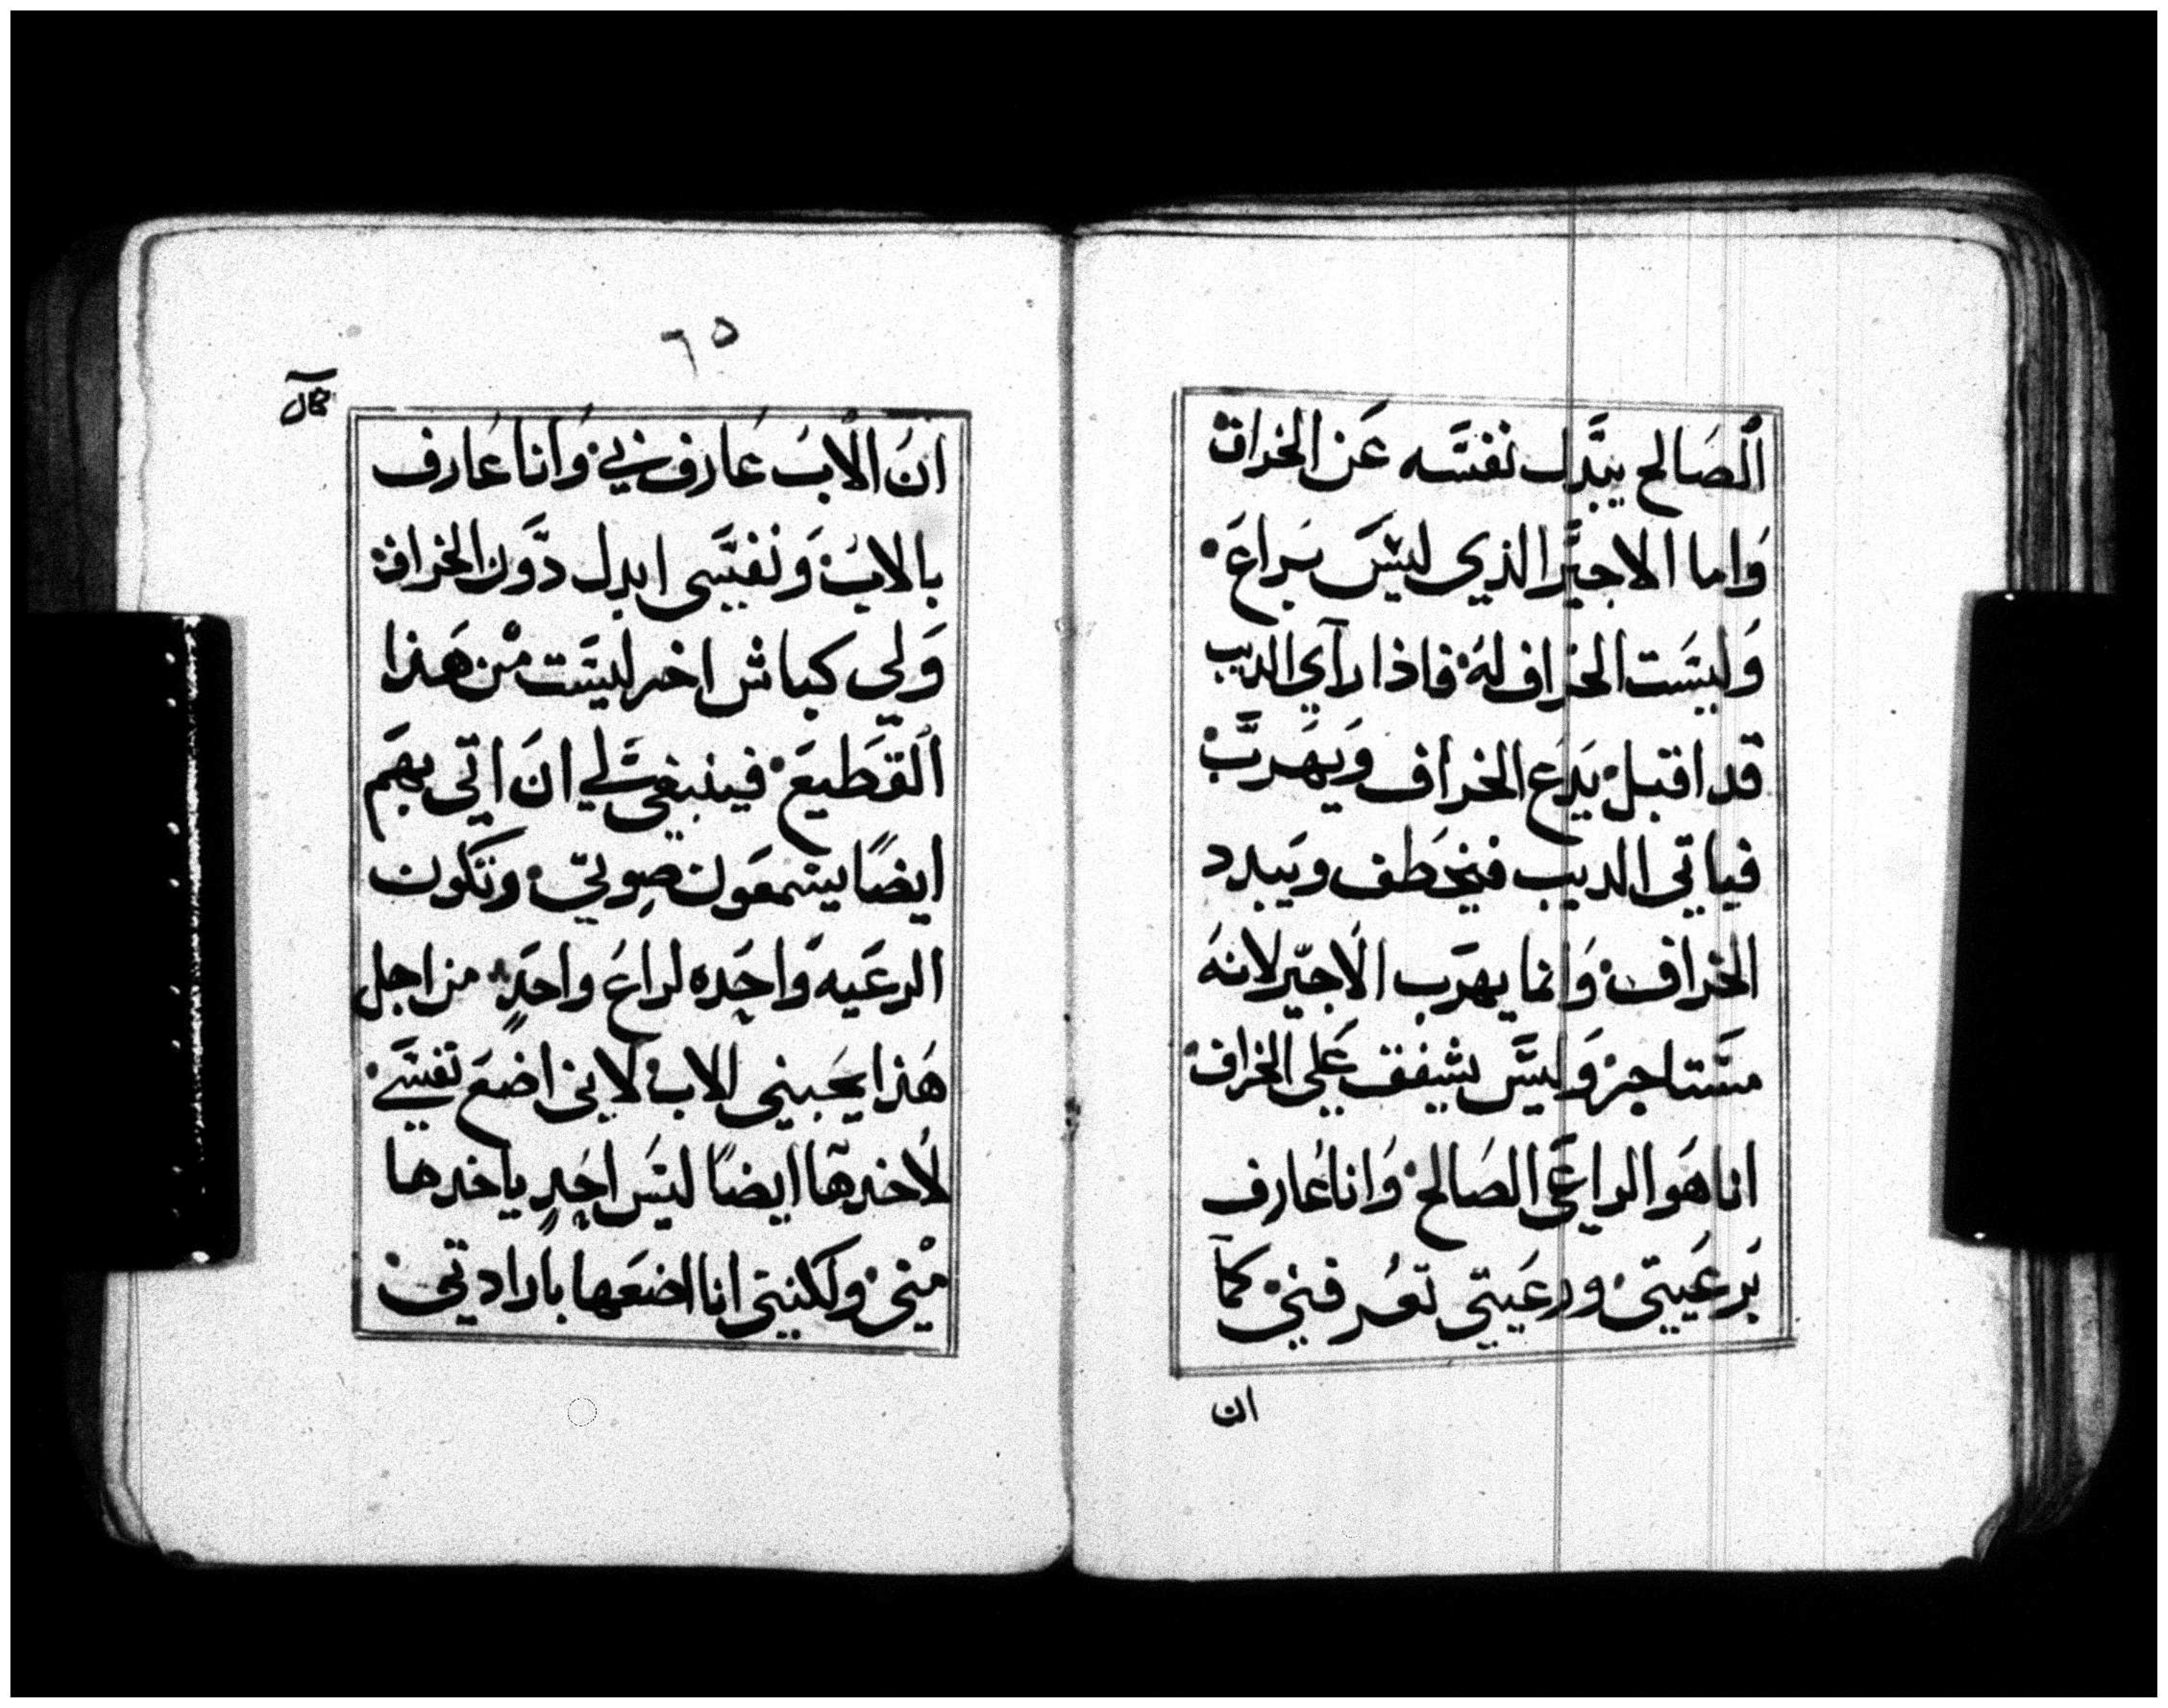 الصَالح يبَدل نفسَه عَن الخراف
وَاما الاجيَر الذي ليسَ برَاعَ
وَليسَت الخراف لهُ فاذا رآي الديب
قد اقبل يَدع الخراف وَيهَربَ
فياتي الديب فيخطَف ويَبدد
الخراف وَانما يهرَب الاجيّر لانهَ
مسَتاجر وَليسَ يشفق عَلي الخراف
انا هَو الراعَي الصَالح وَانا عَارف
برَعَيتي ورعَيتي تعَرفني كمآ
ان
٦٥
كمآل
انَ الابَ عَارف بي وَانا عَارف
بالابَ وَنفسَي ابدل دَون الخراف
وَلي كباش اخر ليسَت منْ هَذا
القَطيعَ فينبغي لي انَ اتّي بهَم
ايضًا يسَمعَون صوتي وتكون
الرعَيه وَاحَده لراعَ واحَدٍ من اجل
هَذا يحَبني الاب لاني اضعَ نفسَي
لاخدهآ ايضًا ليسَ احَدٍ ياخدها
منْي ولكنني انا اضعَها بارادتي